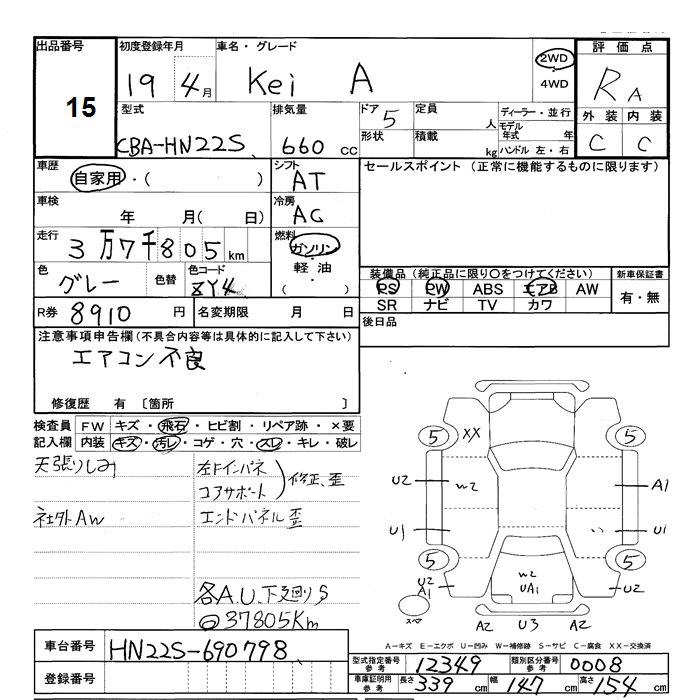 出品番号 初度登録年月 車名・グレード 評価点
15 19 4月 Kei A 2WD 4WD RA
型式 排気量 ドア 5 定員 人 ディーラー・並行 外装 内装
CBA-HN22S 660 cc 形状 積載 kg モデル年式 年 C C
ハンドル 左・右
車歴 自家用・( ) シフト AT セールスポイント (正常に機能するものに限ります)
車検 年 月( 日) 冷房 AC
走行 3万7千805km 燃料 ガソリン
軽油
( )
色 グレー 色替 色コード ZY4 装備品 (純正品に限り○をつけてください) 新車保証書
PS PW ABS エアB AW 有・無
SR ナビ TV カワ
R券 8910 円 名変期限 月 日 後日品
注意事項申告欄 (不具合内容等は具体的に記入して下さい)
エアコン不良
修復歴 有 〔箇所 〕
検査員 FW キズ・飛石・ヒビ割・リペア跡・×要
記入欄 内装 キズ・汚レ・コゲ・穴・スレ・キレ・破レ
天張りしみ 左Fインパネ
コアサポート 修正、歪
社外AW エンドパネル歪
各A.U.下廻りS
37805Km
5 XX 5
U2 W2 A1
U1 U1
5 5
U2 A1 W2 UA1 U2
スペア A2 U3 A2
A-キズ E-エクボ U-凹み W-補修跡 S-サビ C-腐食 XX-交換済
車台番号 HN22S-690798 型式指定番号 参考 12349 類別区分番号 参考 0008
登録番号 車庫証明用 参考 長さ 339 cm 幅 147 cm 高さ 154 cm